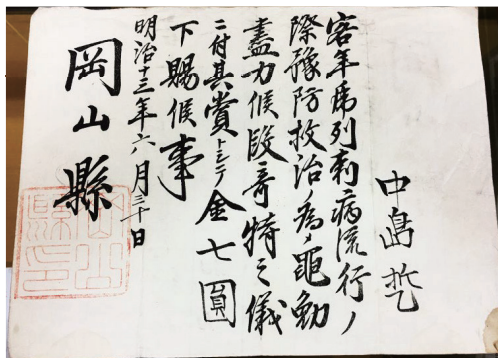 中島哲
客年虎列刺病流行ノ
際豫防救治ノ為メ黽勉
盡力候段奇特之儀
ニ付其賞トシテ金七圓
下賜候事
明治十三年六月三十日
岡山縣
岡山縣印